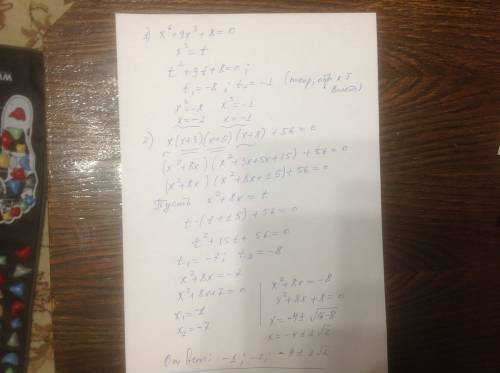 1) x⁶+9x³+8=0
x³=t
t²+9t+8=0;
t₁=-8, t₂=-1 (теор, обр к т Виета)
x³=-8 x³=-1
x=-2 x=-1
2) x(x+3)(x+5)(x+8)+56=0
(x²+8x)(x²+3x+5x+15)+56=0
(x²+8x)(x²+8x+15)+56=0
Пусть x²+8x=t
t·(t+15)+56=0
t²+15t+56=0
t₁=-7; t₂=-8
x²+8x=-7
x²+8x+7=0
x₁=-8
x₂=-7
x²+8x=-8
x²+8x+8=0
x=-4±√16-8
x=-4±2√2
Ответ: -1; -7; -4±2√2